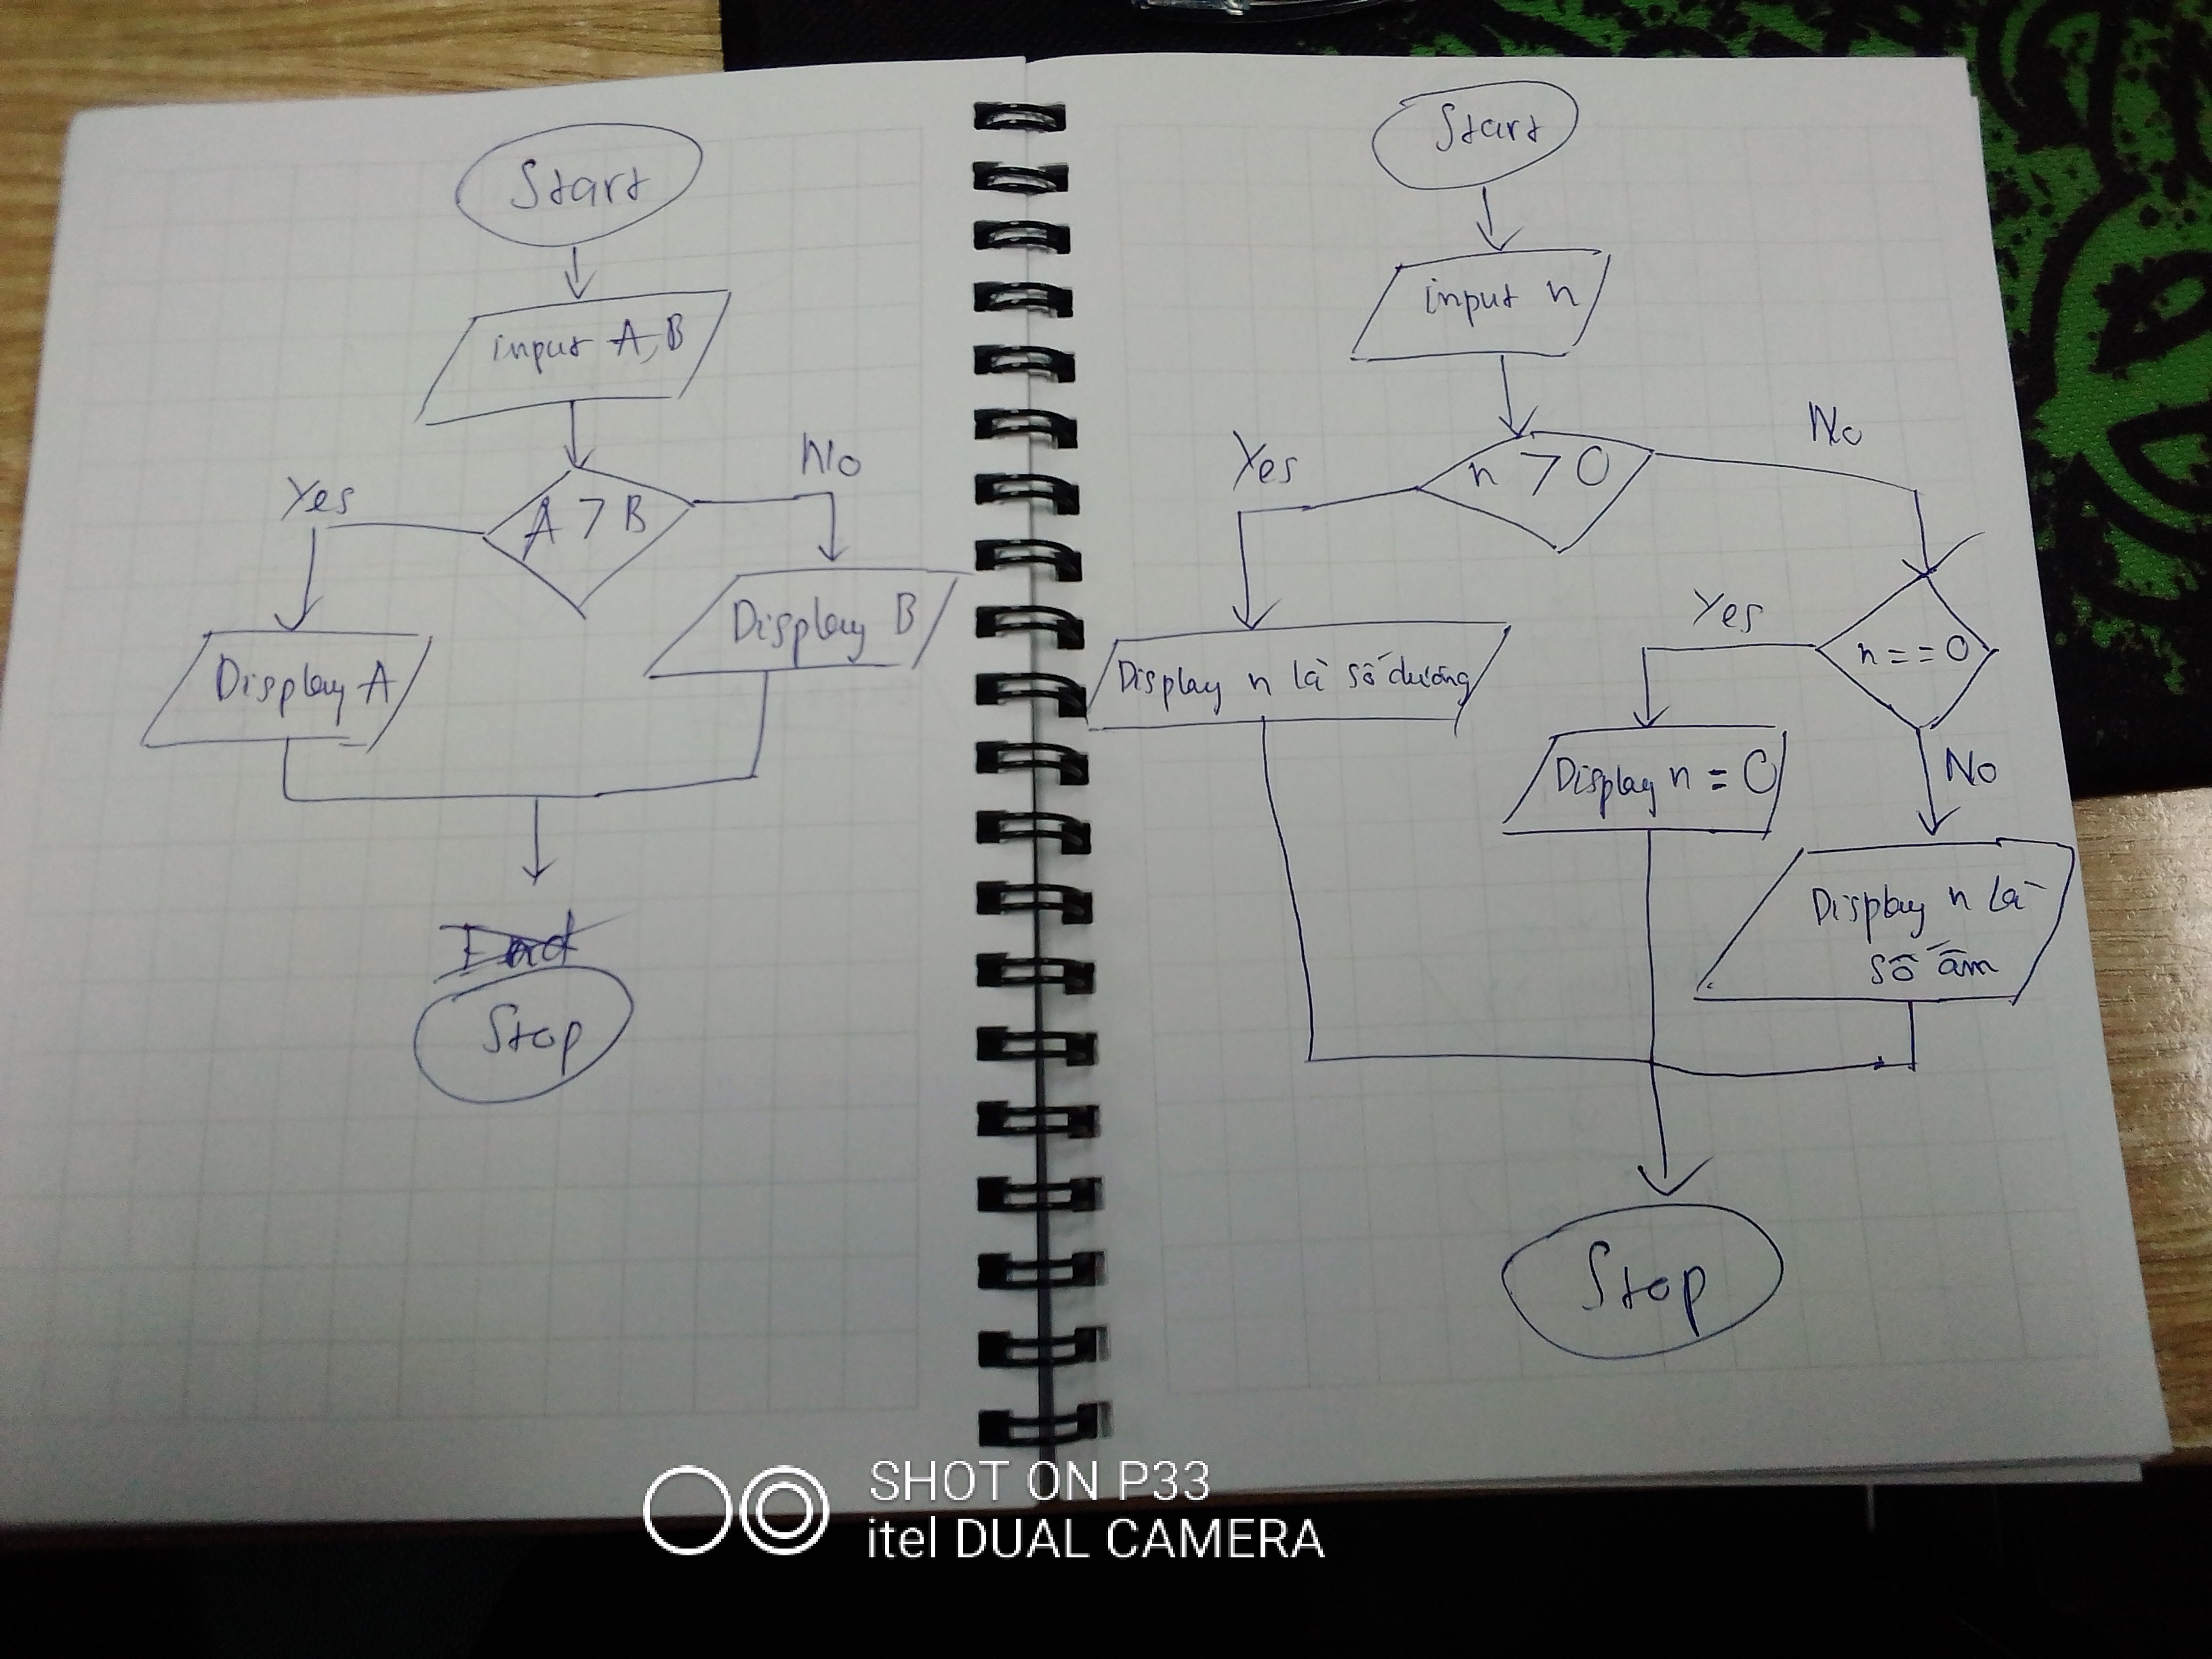 Start
input A, B
A > B
Yes
No
Display A
Display B
End
Stop
Start
input n
n > 0
Yes
No
Display n là số dương
n == 0
Yes
No
Display n = 0
Display n là
số âm
Stop
SHOT ON P33
itel DUAL CAMERA